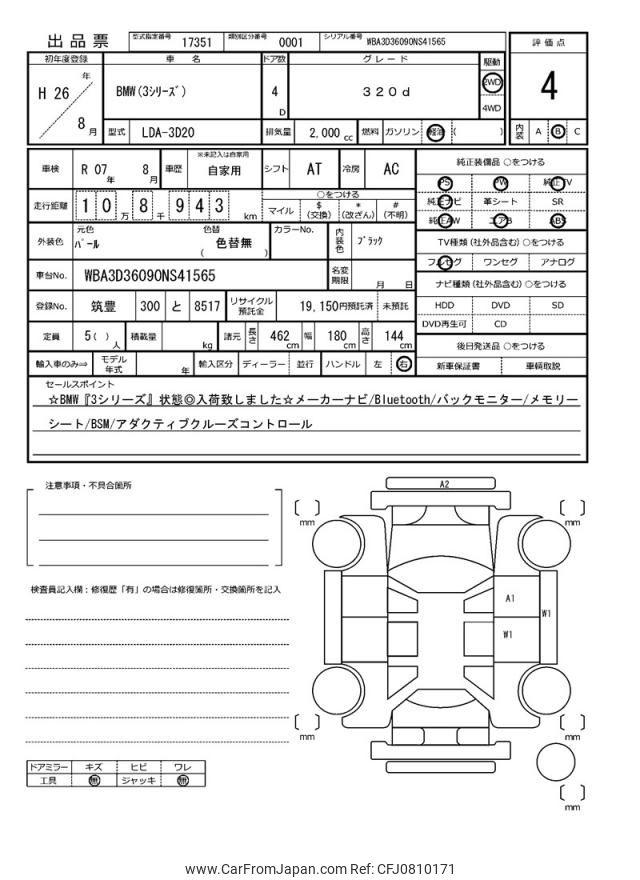 出品票
型式指定番号 17351 類別区分番号 0001 シリアル番号 WBA3D36090NS41565
評価点
4
内装 A B C
初年度登録 車名 ドア数 グレード 駆動
H 26 年 8 月
BMW(3シリーズ) 4 D 320d 2WD
4WD
型式 LDA-3D20 排気量 2,000 cc 燃料 ガソリン 軽油 ( )
車検 R 07 年 8 月 車歴 ※未記入は自家用 自家用 シフト AT 冷房 AC
走行距離 10 万 8 千 943 km
○をつける
マイル $(交換) *(改ざん) #(不明)
外装色 元色 パール 色替 ( 色替無 ) カラーNo. 内装色 ブラック
車台No. WBA3D36090NS41565 名変期限 月 日
登録No. 筑豊 300 と 8517 リサイクル預託金 19,150円預託済 未預託
定員 5( )人 積載量 kg 諸元 長さ 462 cm 幅 180 cm 高さ 144 cm
輸入車のみ⇒ モデル年式 年 輸入区分 ディーラー 並行 ハンドル 左 右
純正装備品 ○をつける
PS PW 純正TV
純正ナビ 革シート SR
純正AW エアB ABS
TV種類(社外品含む)○をつける
フルセグ ワンセグ アナログ
ナビ種類(社外品含む)○をつける
HDD DVD SD
DVD再生可 CD
後日発送品 ○をつける
新車保証書 車輌取説
セールスポイント
☆BMW『3シリーズ』状態◎入荷致しました☆メーカーナビ/Bluetooth/バックモニター/メモリー
シート/BSM/アダクティブクルーズコントロール
注意事項・不具合箇所
検査員記入欄：修復歴「有」の場合は修復箇所・交換箇所を記入
ドアミラー キズ ヒビ ワレ
工具 無 ジャッキ 無
A2
mm
mm
A1
W1
W1
mm
mm
mm
www.CarFromJapan.com Ref: CFJ0810171